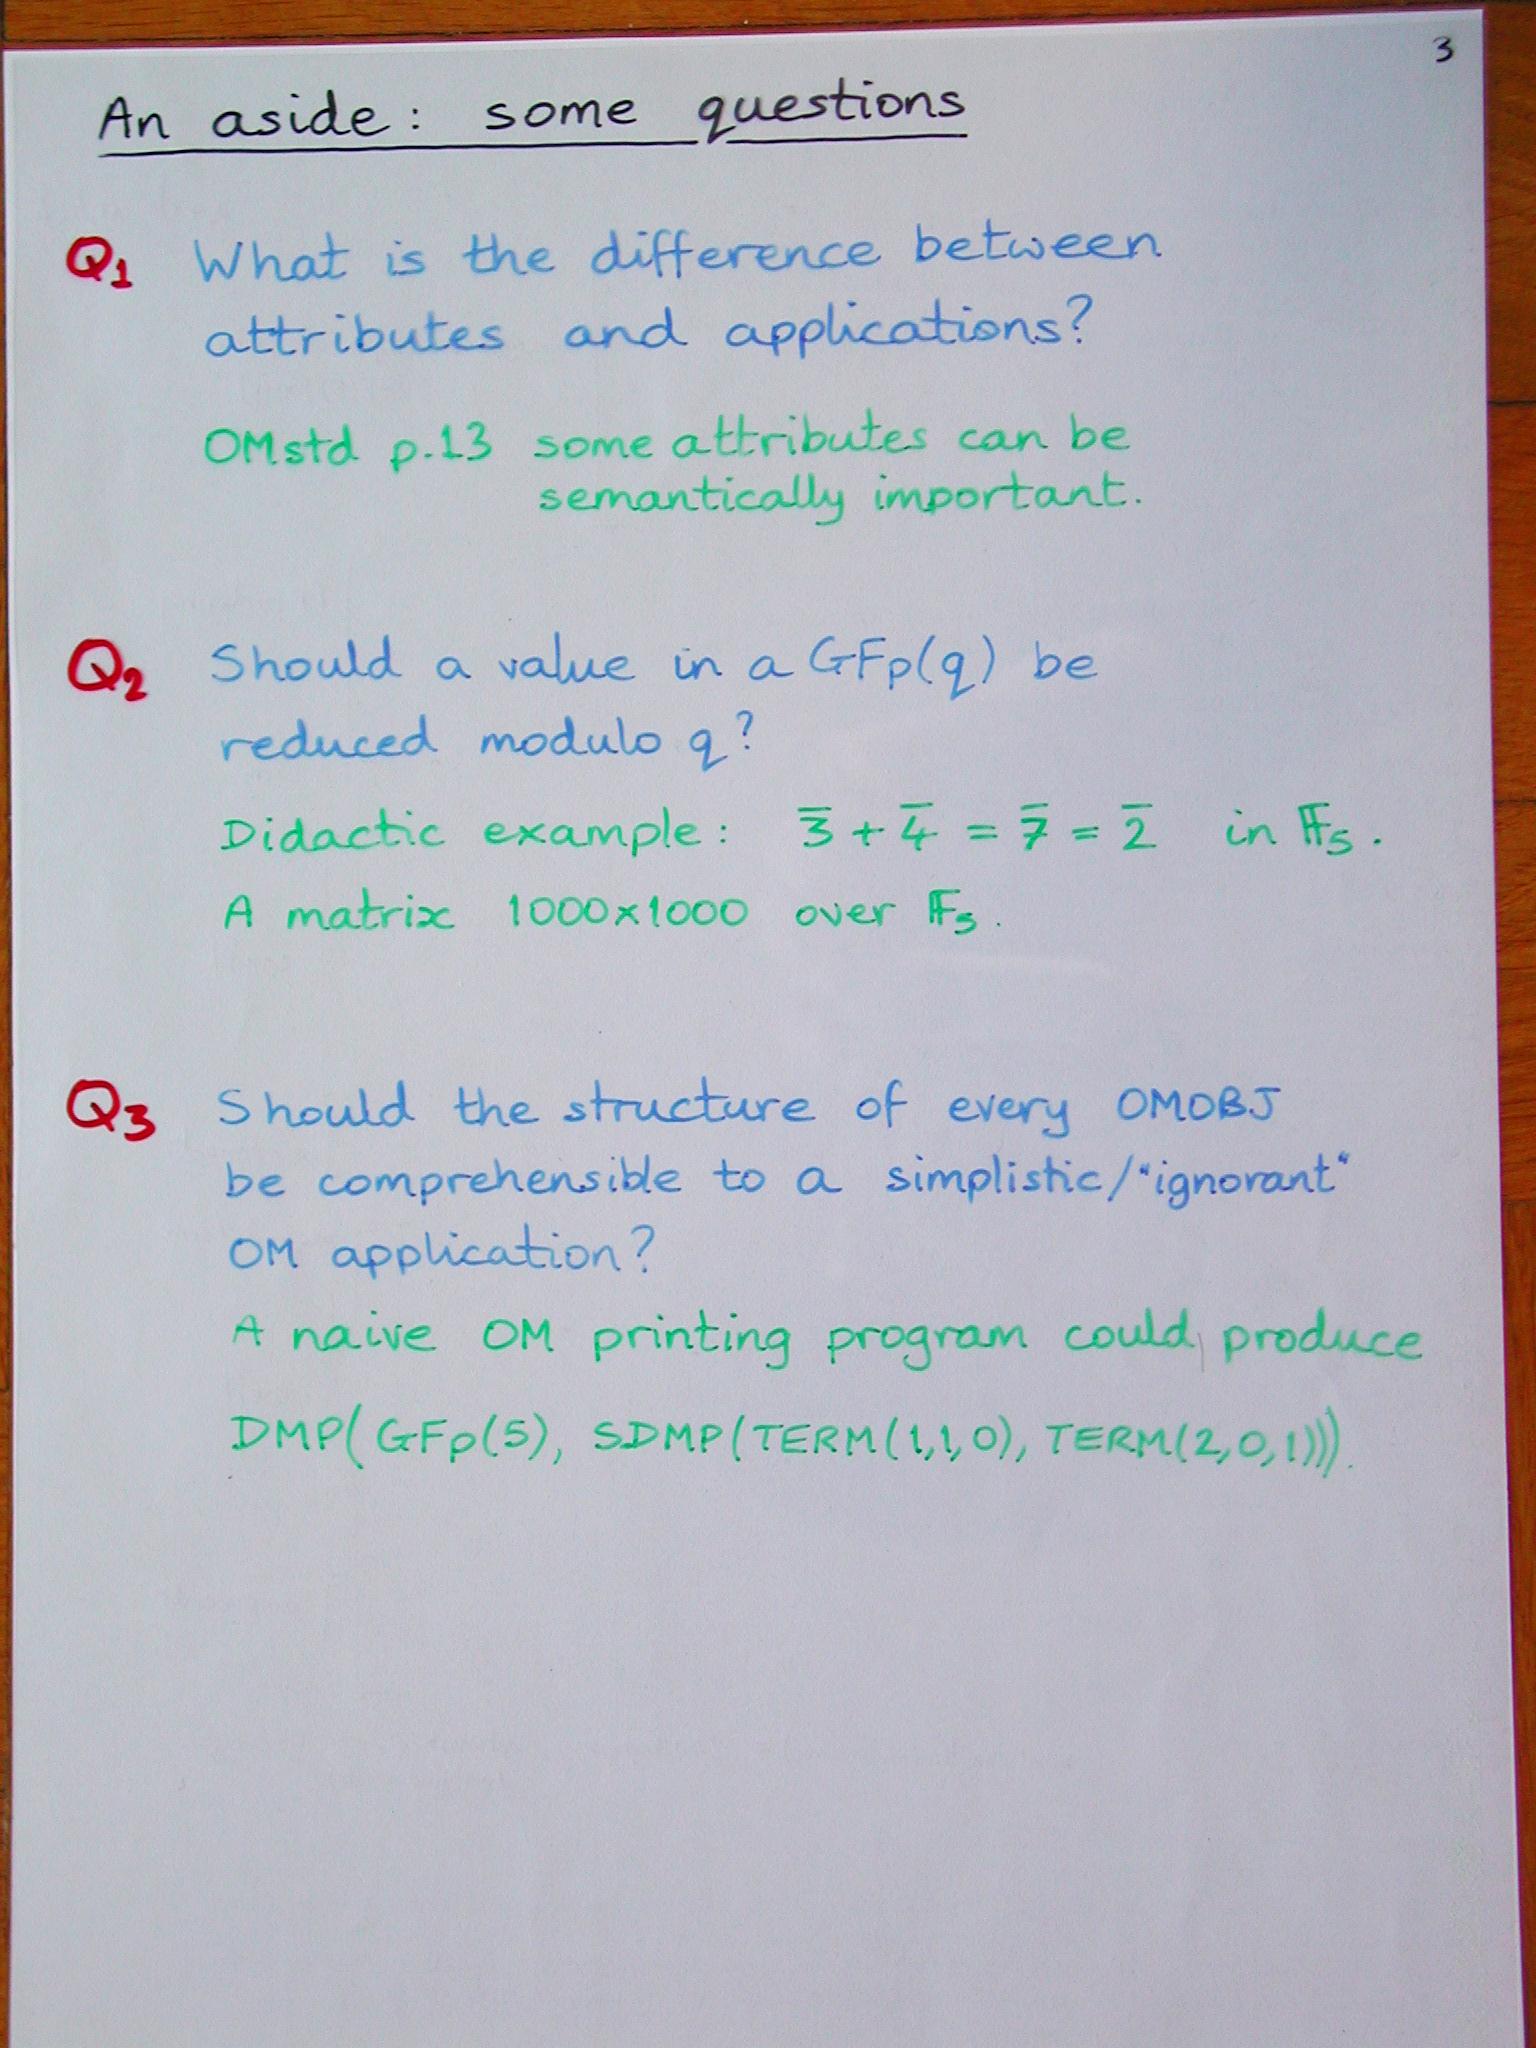 3
An aside: some questions
Q1 What is the difference between
attributes and applications?
OMstd p.13 some attributes can be
semantically important.
Q2 Should a value in a GFp(q) be
reduced modulo q?
Didactic example: 3̅ + 4̅ = 7̅ = 2̅ in 𝔽₅.
A matrix 1000×1000 over 𝔽₅.
Q3 Should the structure of every OMOBJ
be comprehensible to a simplistic/"ignorant"
OM application?
A naive OM printing program could produce
DMP(GFp(5), SDMP(TERM(1,1,0), TERM(2,0,1))).